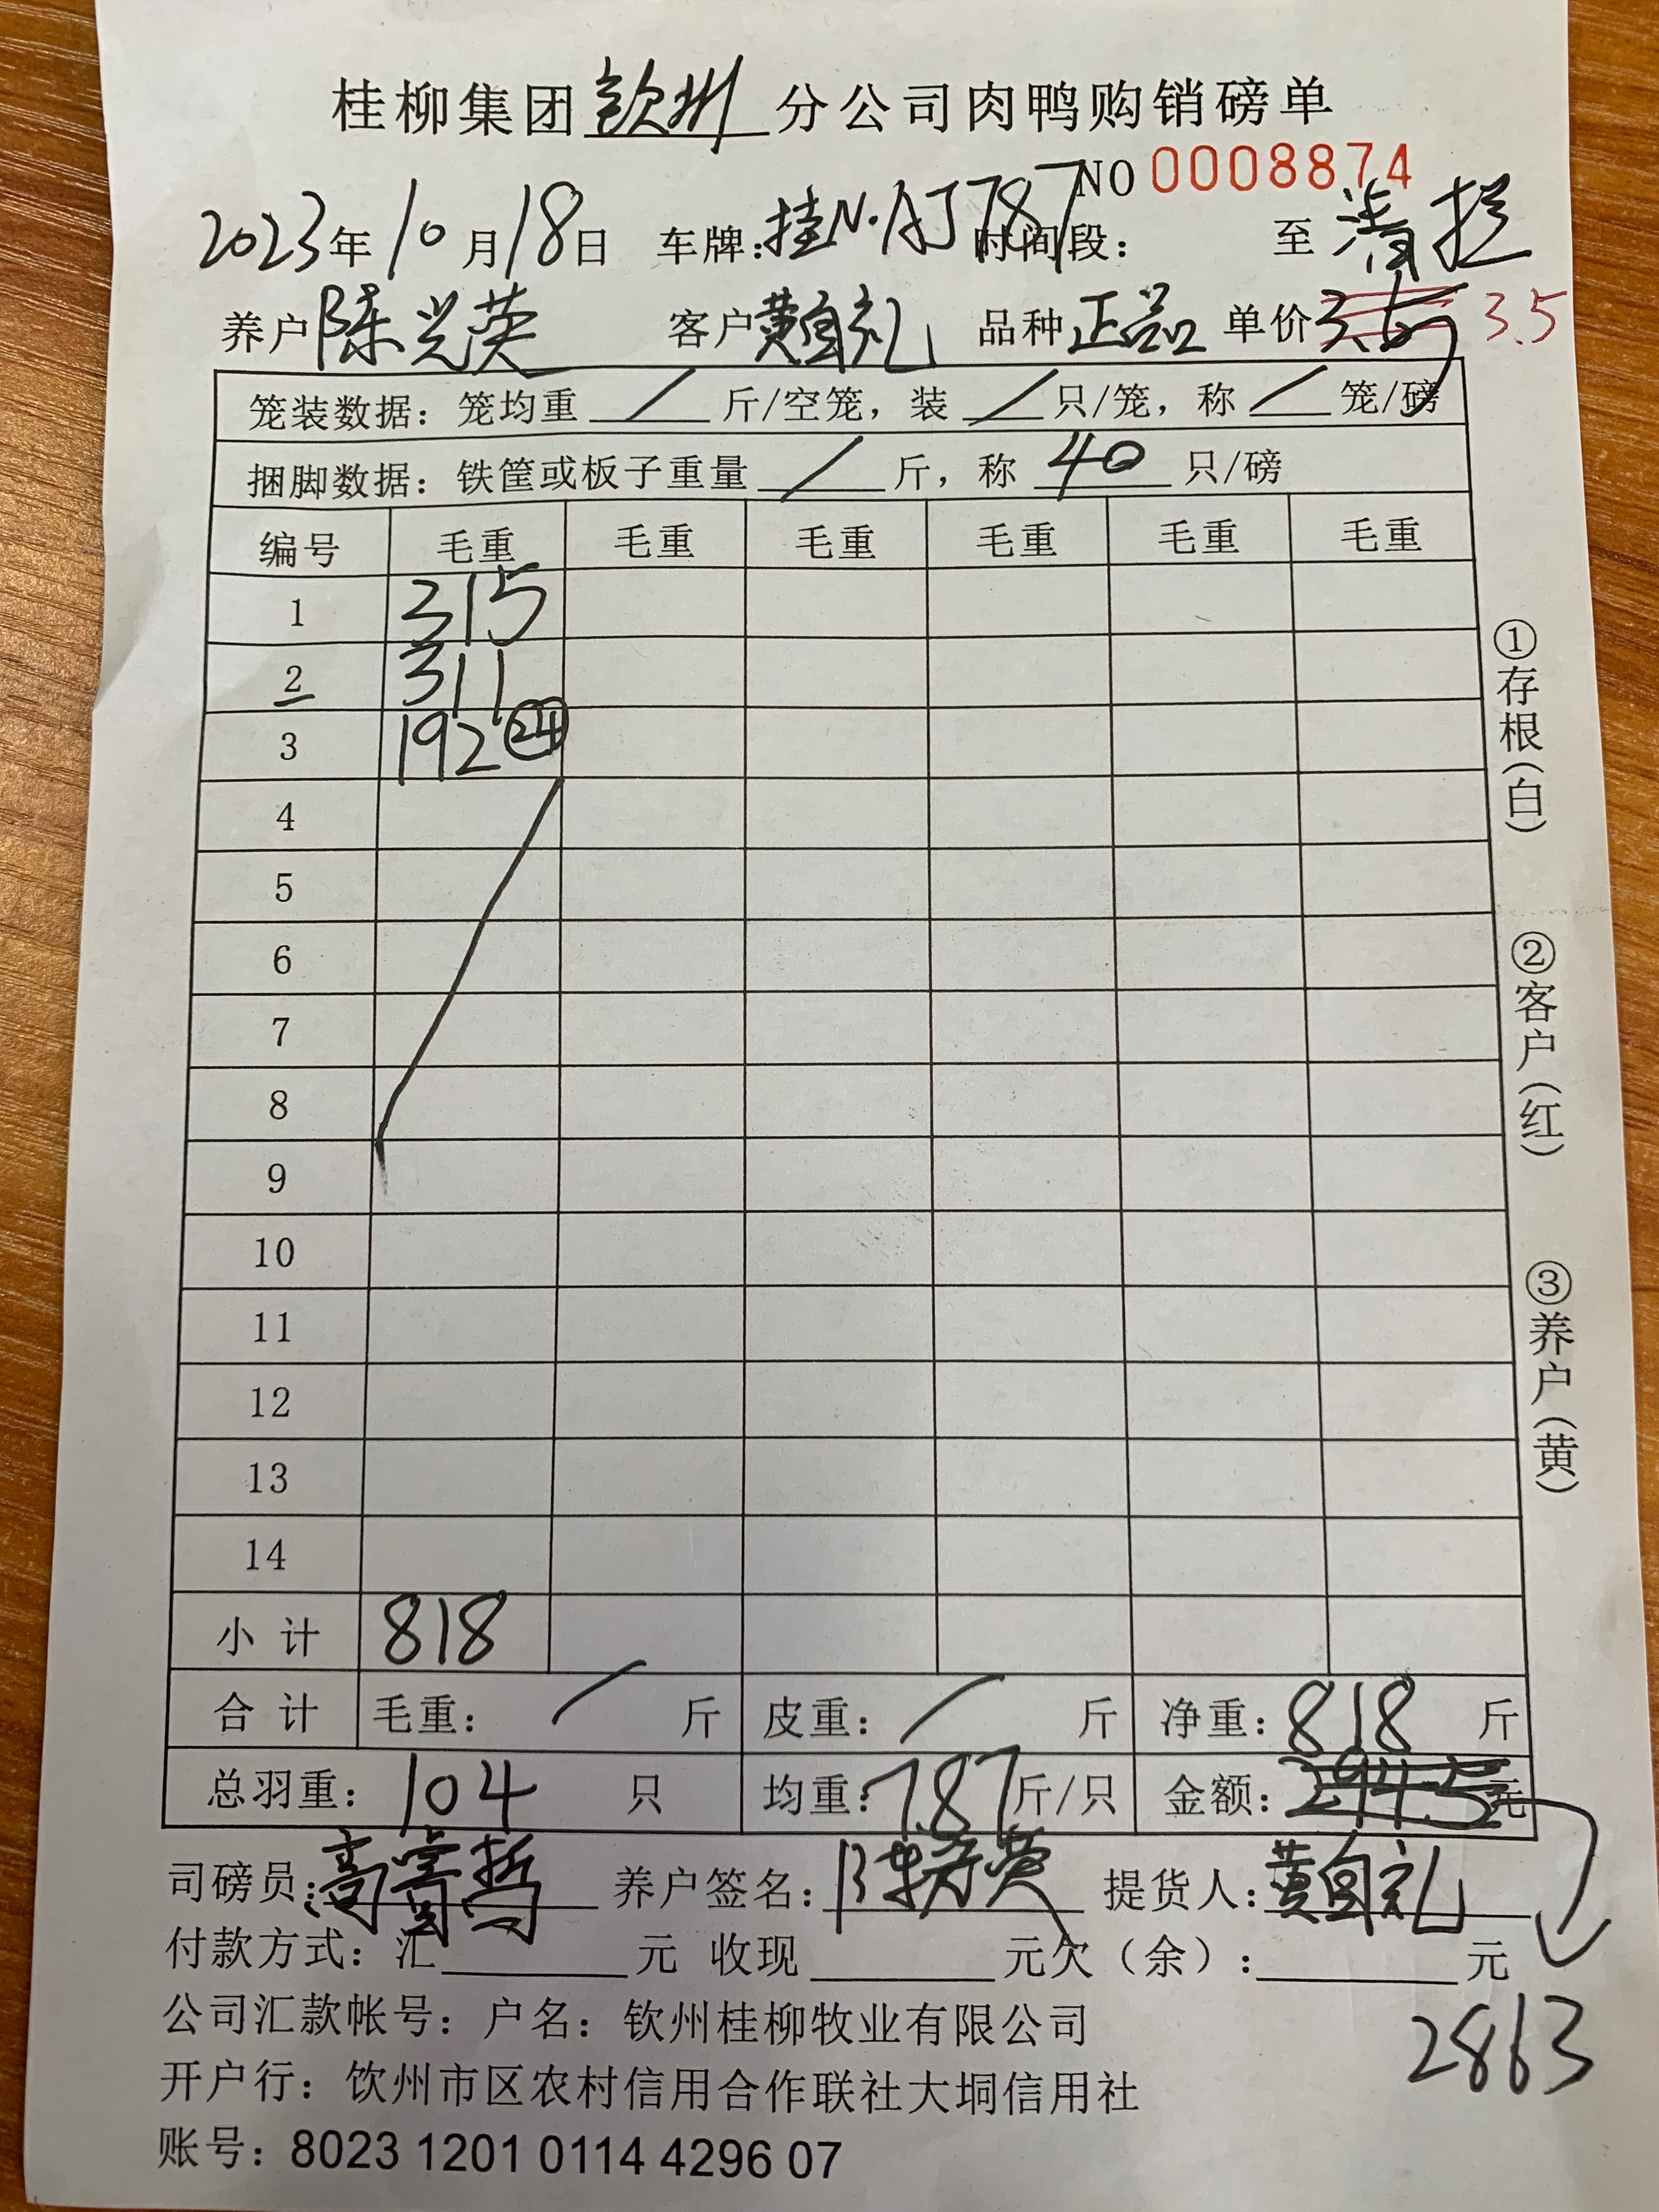 桂柳集团钦州分公司肉鸭购销磅单
NO 0008874
2023年10月18日 车牌:桂N·AJ787 时间段: 至 清抡
养户 陈兴英 客户 黄自礼 品种 正品 单价 3.5
笼装数据:笼均重 / 斤/空笼,装 / 只/笼,称 / 笼/磅
捆脚数据:铁筐或板子重量 / 斤,称 40 只/磅
编号 毛重 毛重 毛重 毛重 毛重 毛重
1 315
2 311
3 192 ㉔
4
5
6
7
8
9
10
11
12
13
14
小计 818
合计 毛重: / 斤 皮重: / 斤 净重:818 斤
总羽重:104 只 均重:7.87斤/只 金额:2945元
司磅员: 养户签名:陈兴英 提货人:黄自礼
付款方式:汇 元 收现 元欠(余): 元
2863
公司汇款帐号:户名:钦州桂柳牧业有限公司
开户行:饮州市区农村信用合作联社大垌信用社
账号:8023 1201 0114 4296 07
①存根(白)
②客户(红)
③养户(黄)